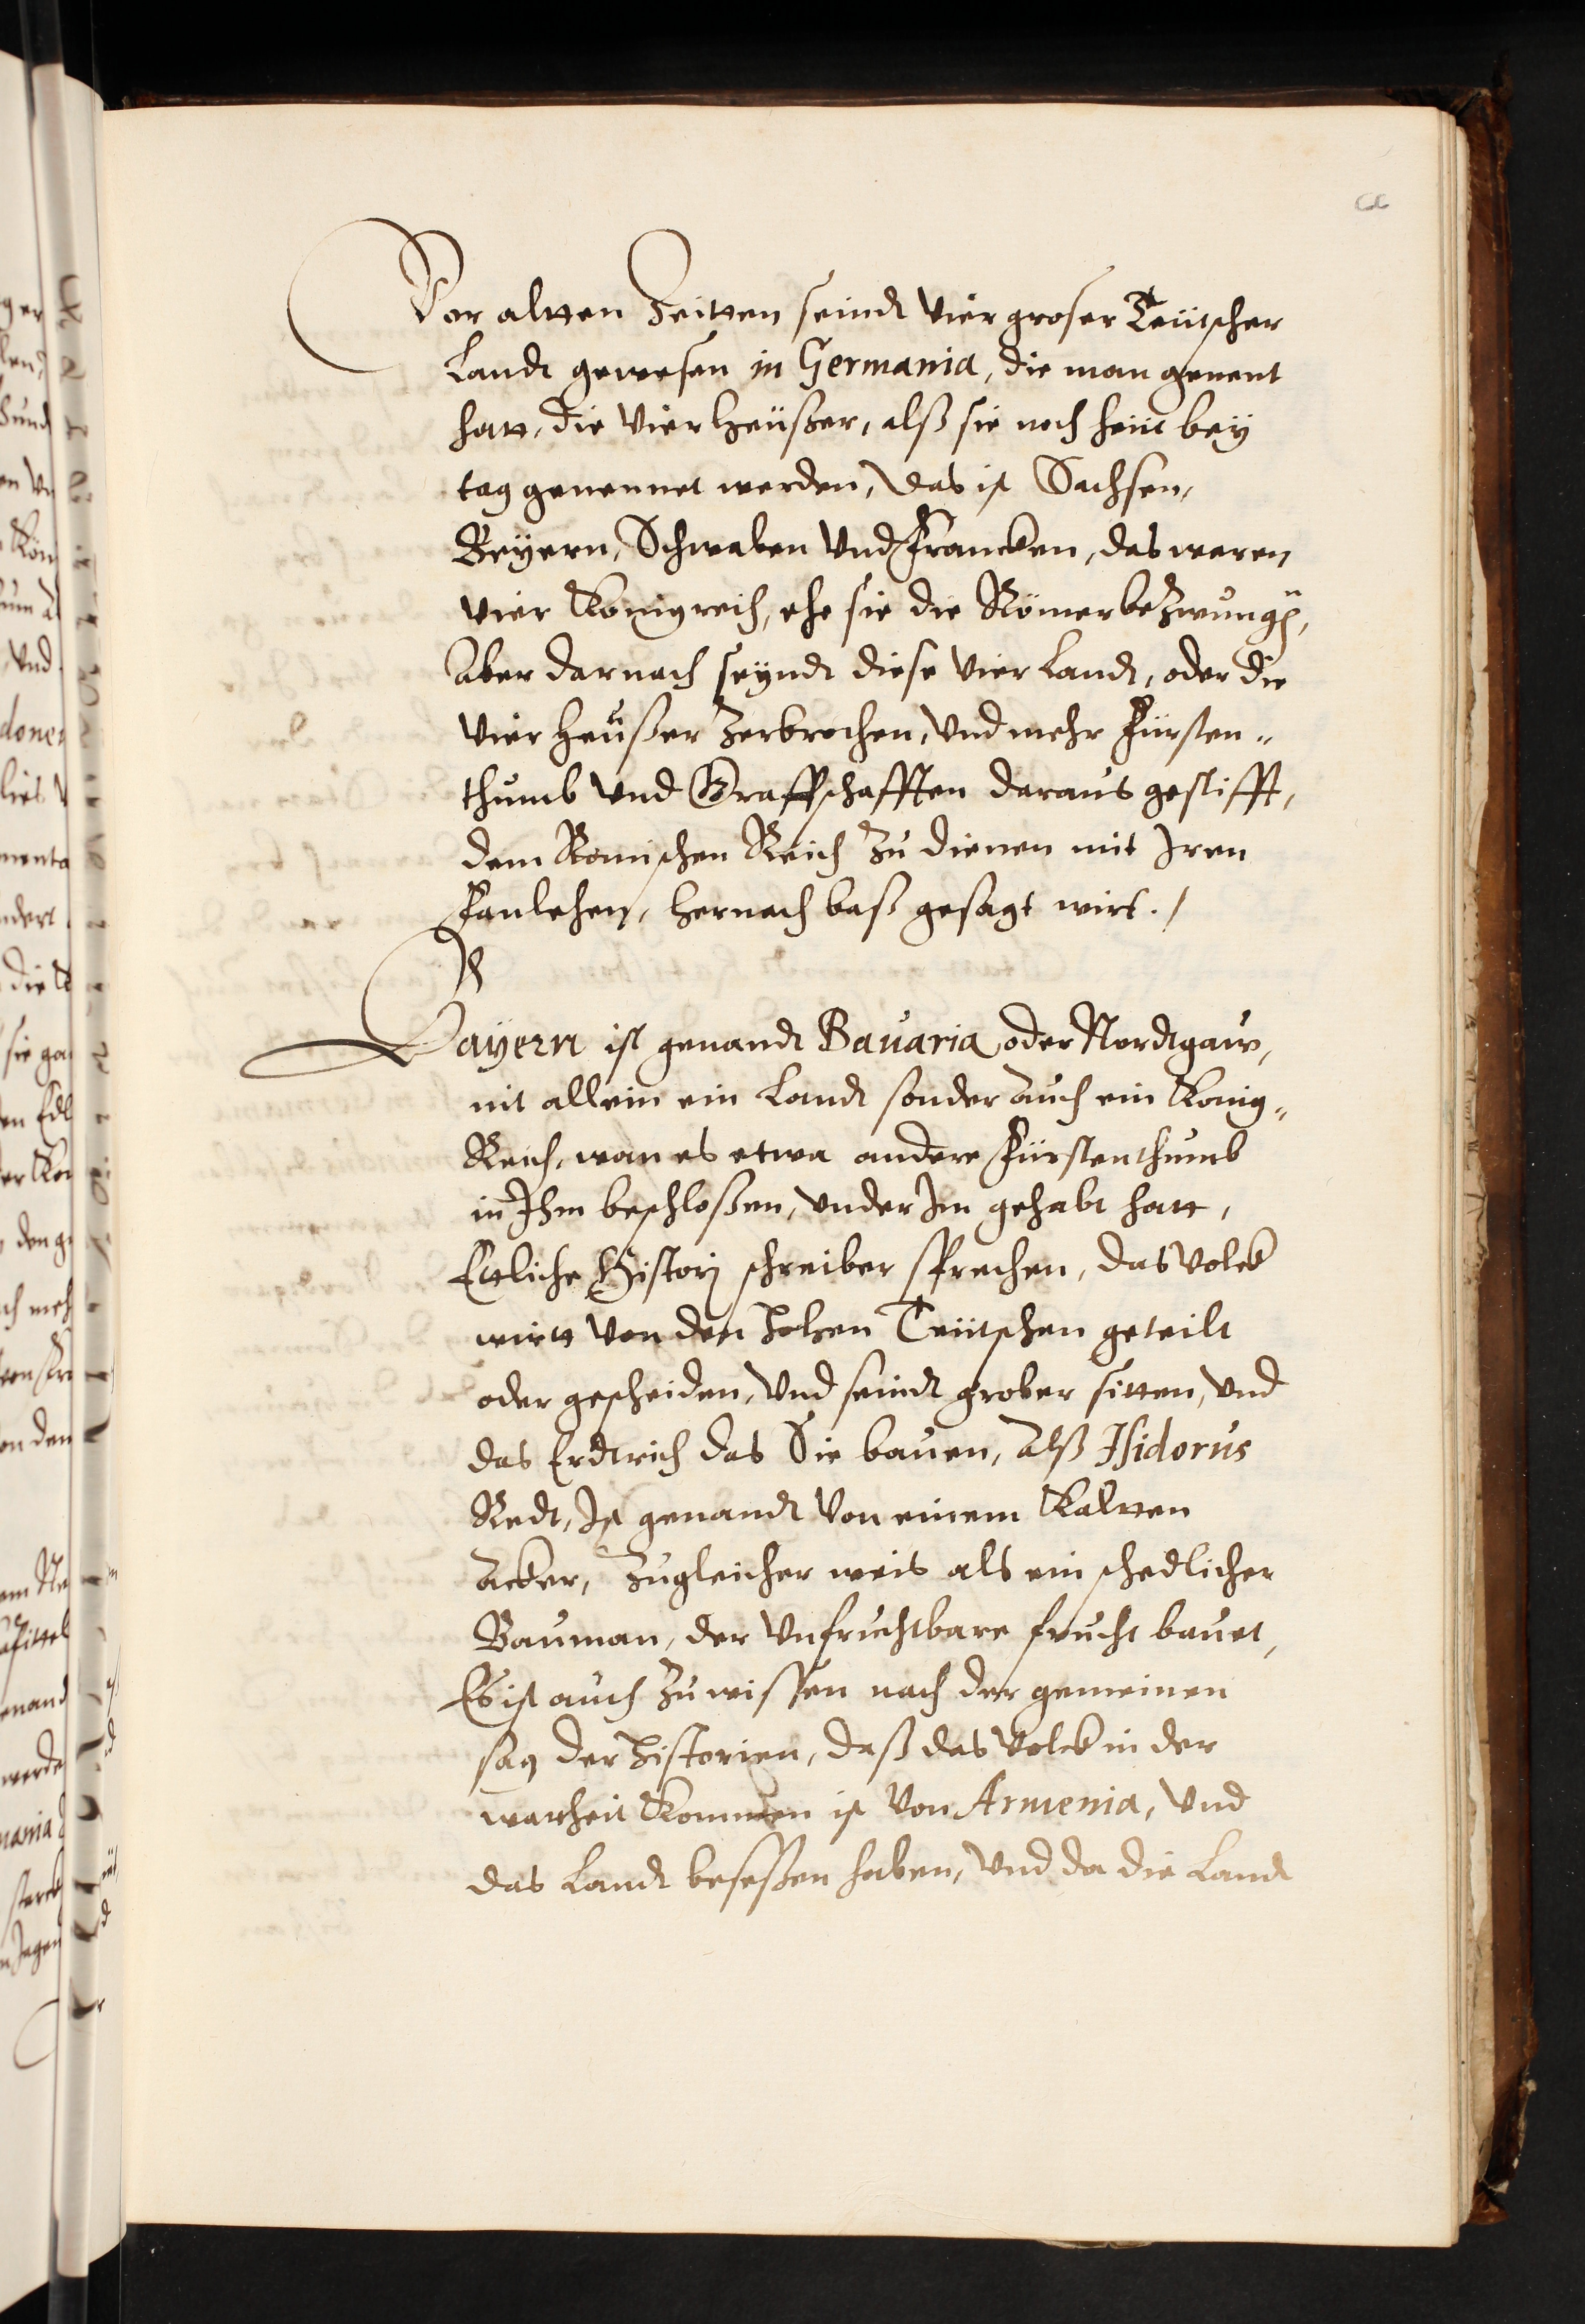 Vor altten Zeitten seindt vier groser Teütscher
Landt gewesen in Germania, die man genent
hatt, die vier heüßer, alß sie noch heüt bey
tag genennet werden, das ist Sachsen,
Beÿern, Schwaben vnd Francken, das waren
vier Königreich, ehe sie die Römer bezwungen,
Aber darnach seÿndt diese vier Landt, oder die
vier heußer zerbrochen, vnd mehr Fürsten-
thumb vnd Graffschafften daraus gestifft,
dem Romischen Reich zu dienen mit Iren
Fanlehen, hernach baß gesagt wirt. /
Bayern ist genandt Bauaria oder Nordtgaw,
nit allein ein Landt sonder auch ein König-
Reich, wan es etwa andere Fürstenthumb
in Ihm beschloßen, vnder Im gehabt hatt,
Ettliche Historj schreiber sprechen, das volck
wirtt von den hohen Teütschen geteilt
oder gescheiden, vnd seindt grober sitten, vnd
das Erdtrich das Sie bauen, Alß Isidorus
Redt, Ist genandt von einem kaltten
Acker, zugleicher weis als ein schedlicher
Bauman, der vnfruchtbare frucht bauet,
Es ist auch zu wissen nach der gemeinen
sag der historien, daß das volck in der
warheit kommen ist von Armenia, vnd
das Landt beseßen haben, vnd da die Landt